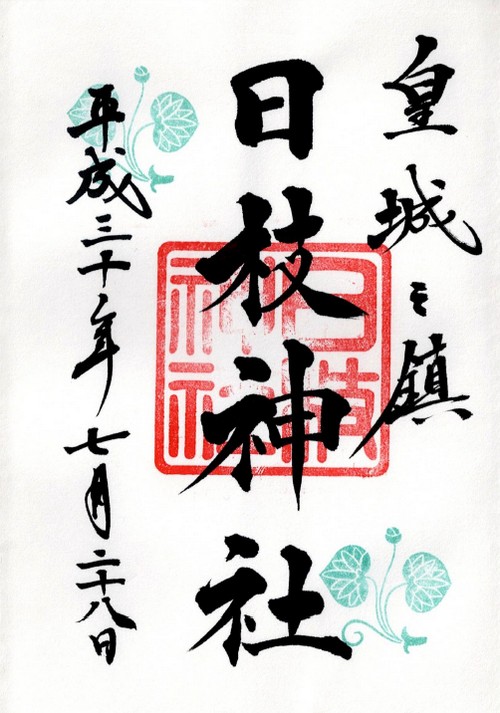 皇城之鎮
日枝神社
平成三十年七月二十八日
日枝
神社